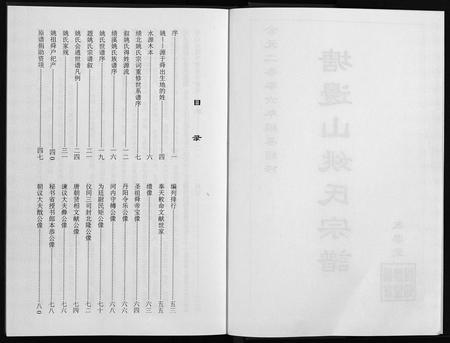 目 录
序 一
姚——源于舜出生地的姓 四
水源木本 六
绩北姚氏宗祠重修世系谱序 七
叙姚氏得姓源流 一二
绩溪姚氏族谱序 一六
姚氏世谱序 一九
姚氏宗谱叙
姚氏会通世谱凡例 二四
姚氏家规 三一
姚祖舜户祀产 四0
原谱捐助资项 四七
编列排行 五三
奉天敕命文献世家 五五
绩像 六三
圣祖舜帝宝像 六四
丹阳令乐公像 六六
河内守公像 六八
为廷尉民矩公像 七十
仪同三司封北隆公像 七二
唐朝贤相文献公像 七四
谏议大夫彝公像 七六
秘书省授书郎本恭公像 七八
朝议大夫猷公像 八0
塘邊山姚氏宗譜